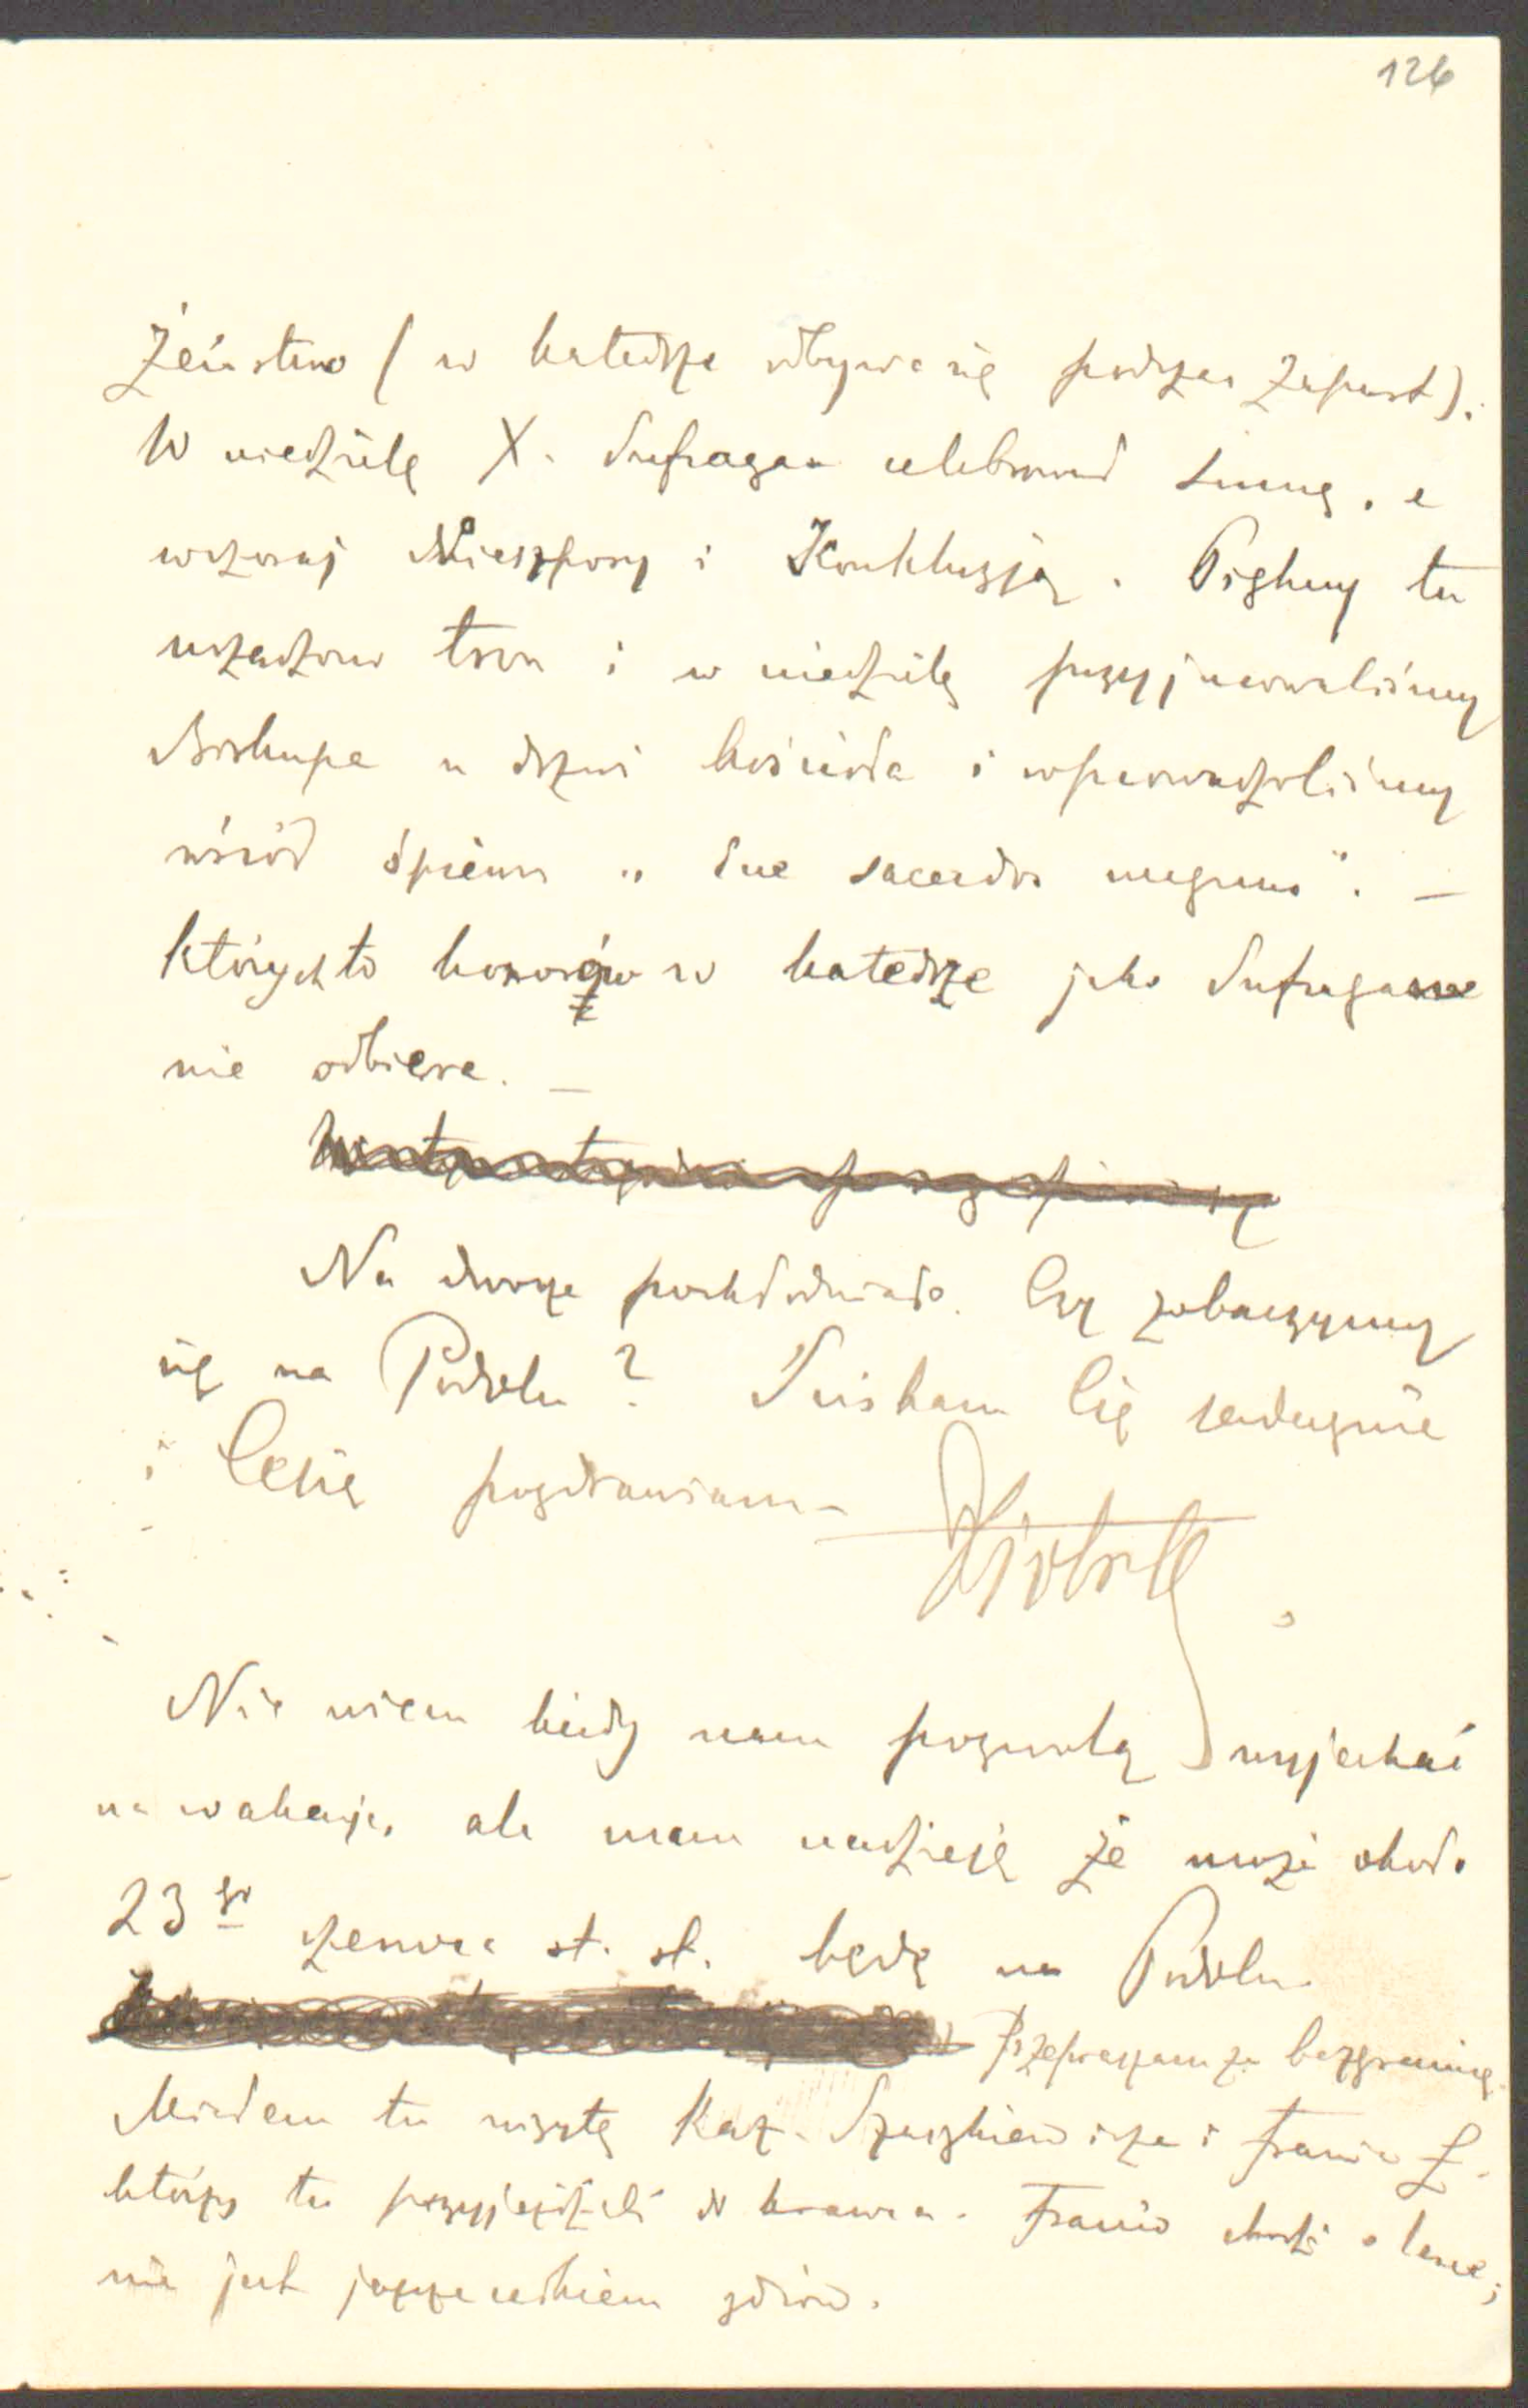 126
żeństwo (w katedrze odbywa się podczas Zapust).
W niedzielę X. Sufragan celebrował sumę, a
wczoraj Nieszpory i Konkluzją. Piękny tu
urządzono tron i w niedzielę przyjmowaliśmy
Biskupa u drzwi kościoła i wprowadzaliśmy
wśród śpiewu „Ecce sacerdos magnus". —
których to honorów w katedrze jako Sufragan
nie odbiera. —
Na dworze pochłodniało. Czy zobaczymy
się na Podolu? Ściskam Cię serdecznie
i Cesię pozdrawiam —
Nie wiem kiedy nam pozwolą wyjechać
na wakacje, ale mam nadzieję że może około
23go czerwca st. st. będę na Podolu.
Przepraszam za bazgraninę.
Miałem tu wizytę Kaz. i Frania Z.
którzy tu przyjeżdżali do krawca. Franio chodzi o lasce;
nie jest jeszcze całkiem zdrów.